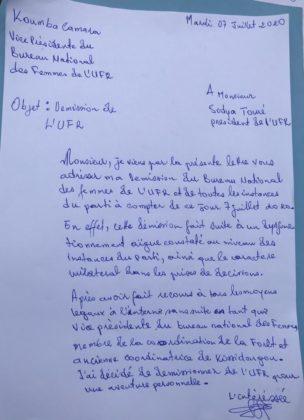 Koumba Camara
Mardi 07 Juillet 2020
Vice Présidente du
Bureau National
des Femmes de l'UFR
A Monsieur
Sidya Touré
président de l'UFR
Objet : Demission de
L'UFR
Monsieur, je viens par la présente lettre vous
adresser ma demission du Bureau National
des femmes de L'UFR et de toutes les instances
du parti à compter de ce jour 7 juillet 2020.
En effet, cette démission fait suite à un dysfonc
tionnement aigue constaté au niveau des
instances du parti, ainsi que le caractere
unilateral dans les prises de decisions.
Après avoir fait recours à tous les moyens
legaux à l'interne sans suite en tant que
Vice présidente du bureau national des Femmes
membre de la coordination de la Forêt et
ancienne coordinatrice de Kissidougou.
J'ai décidé de demissionner de l'UFR pour
une aventure personnelle.
L'intéréssée